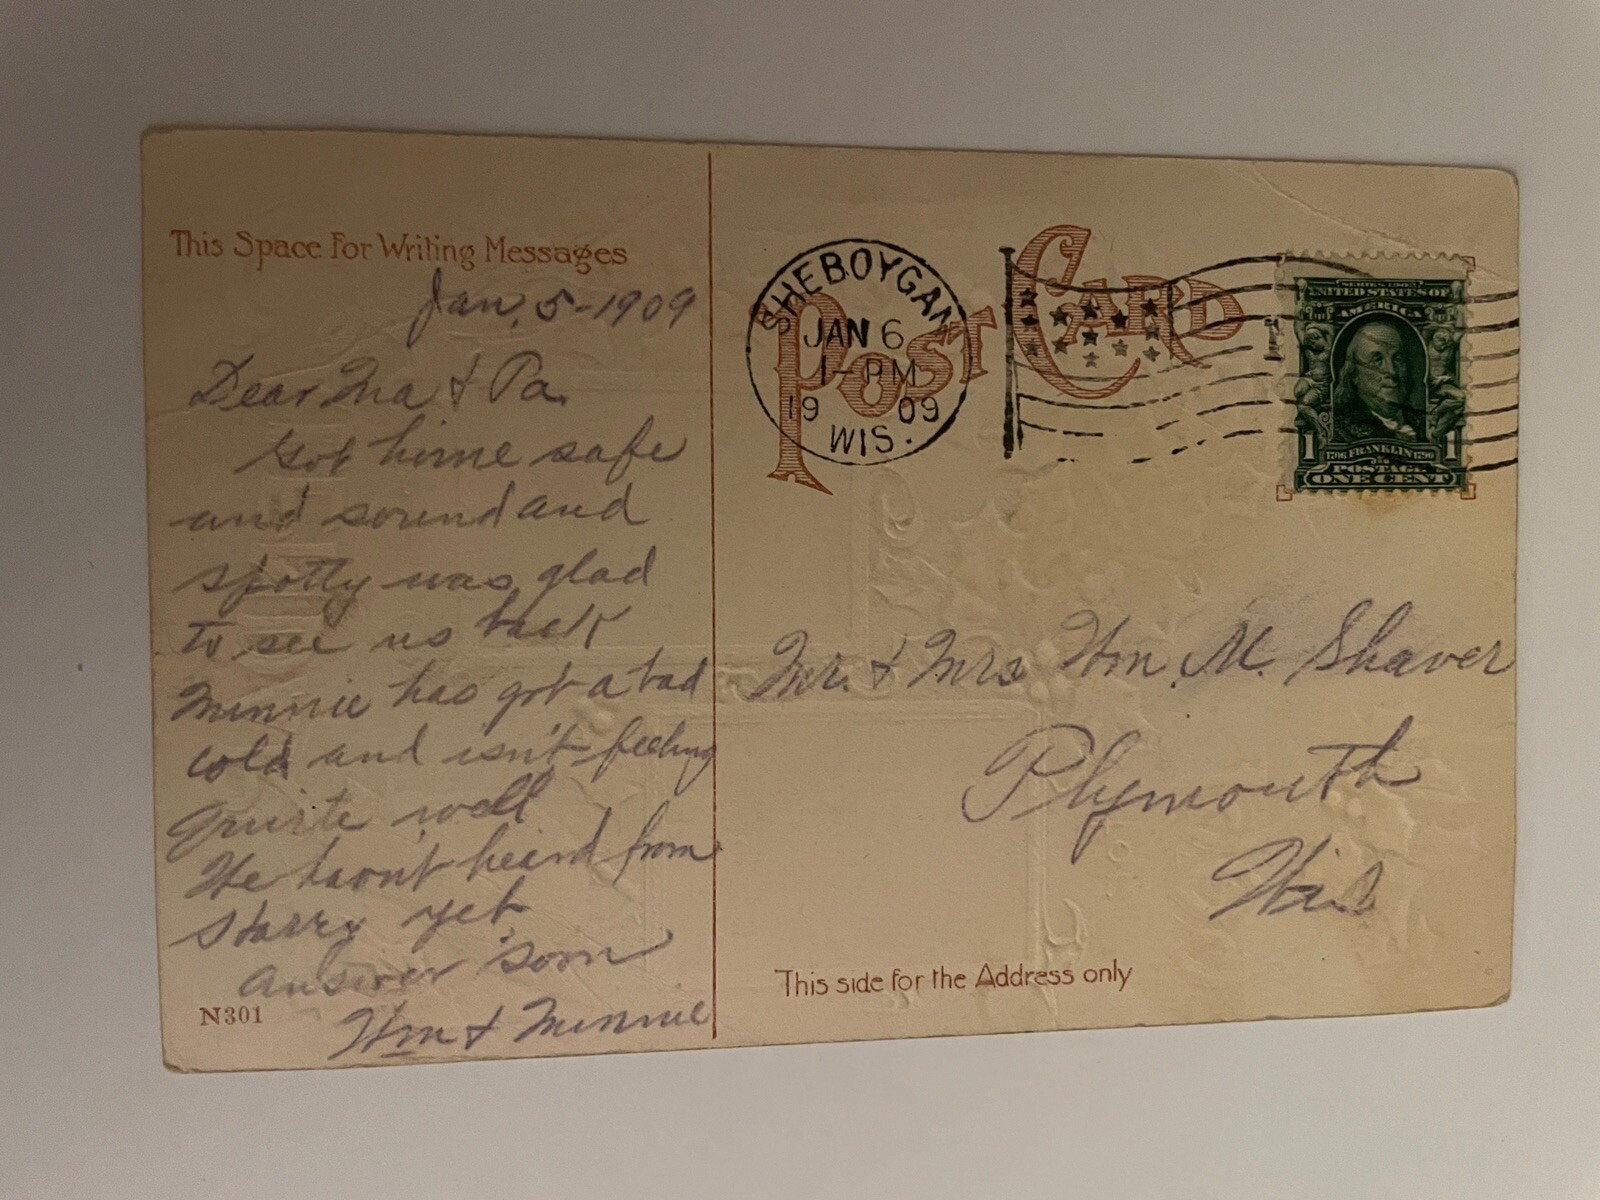 This Space For Writing Messages
Jan. 5-1909
Dear Ma & Pa.
Got home safe
and sound and
spotty was glad
to see us back
Minnie has got a bad
cold and isn't feeling
quite well
We havn't heard from
Harry yet
answer soon
Wm & Minnie
N301
POST CARD
SHEBOYGAN
JAN 6
1-PM
1909
WIS.
SERIES 1902
UNITED STATES OF
AMERICA
1706 FRANKLIN 1790
1 POSTAGE 1
ONE CENT
Mr. & Mrs Wm. M. Shaver
Plymouth
Wis
This side for the Address only